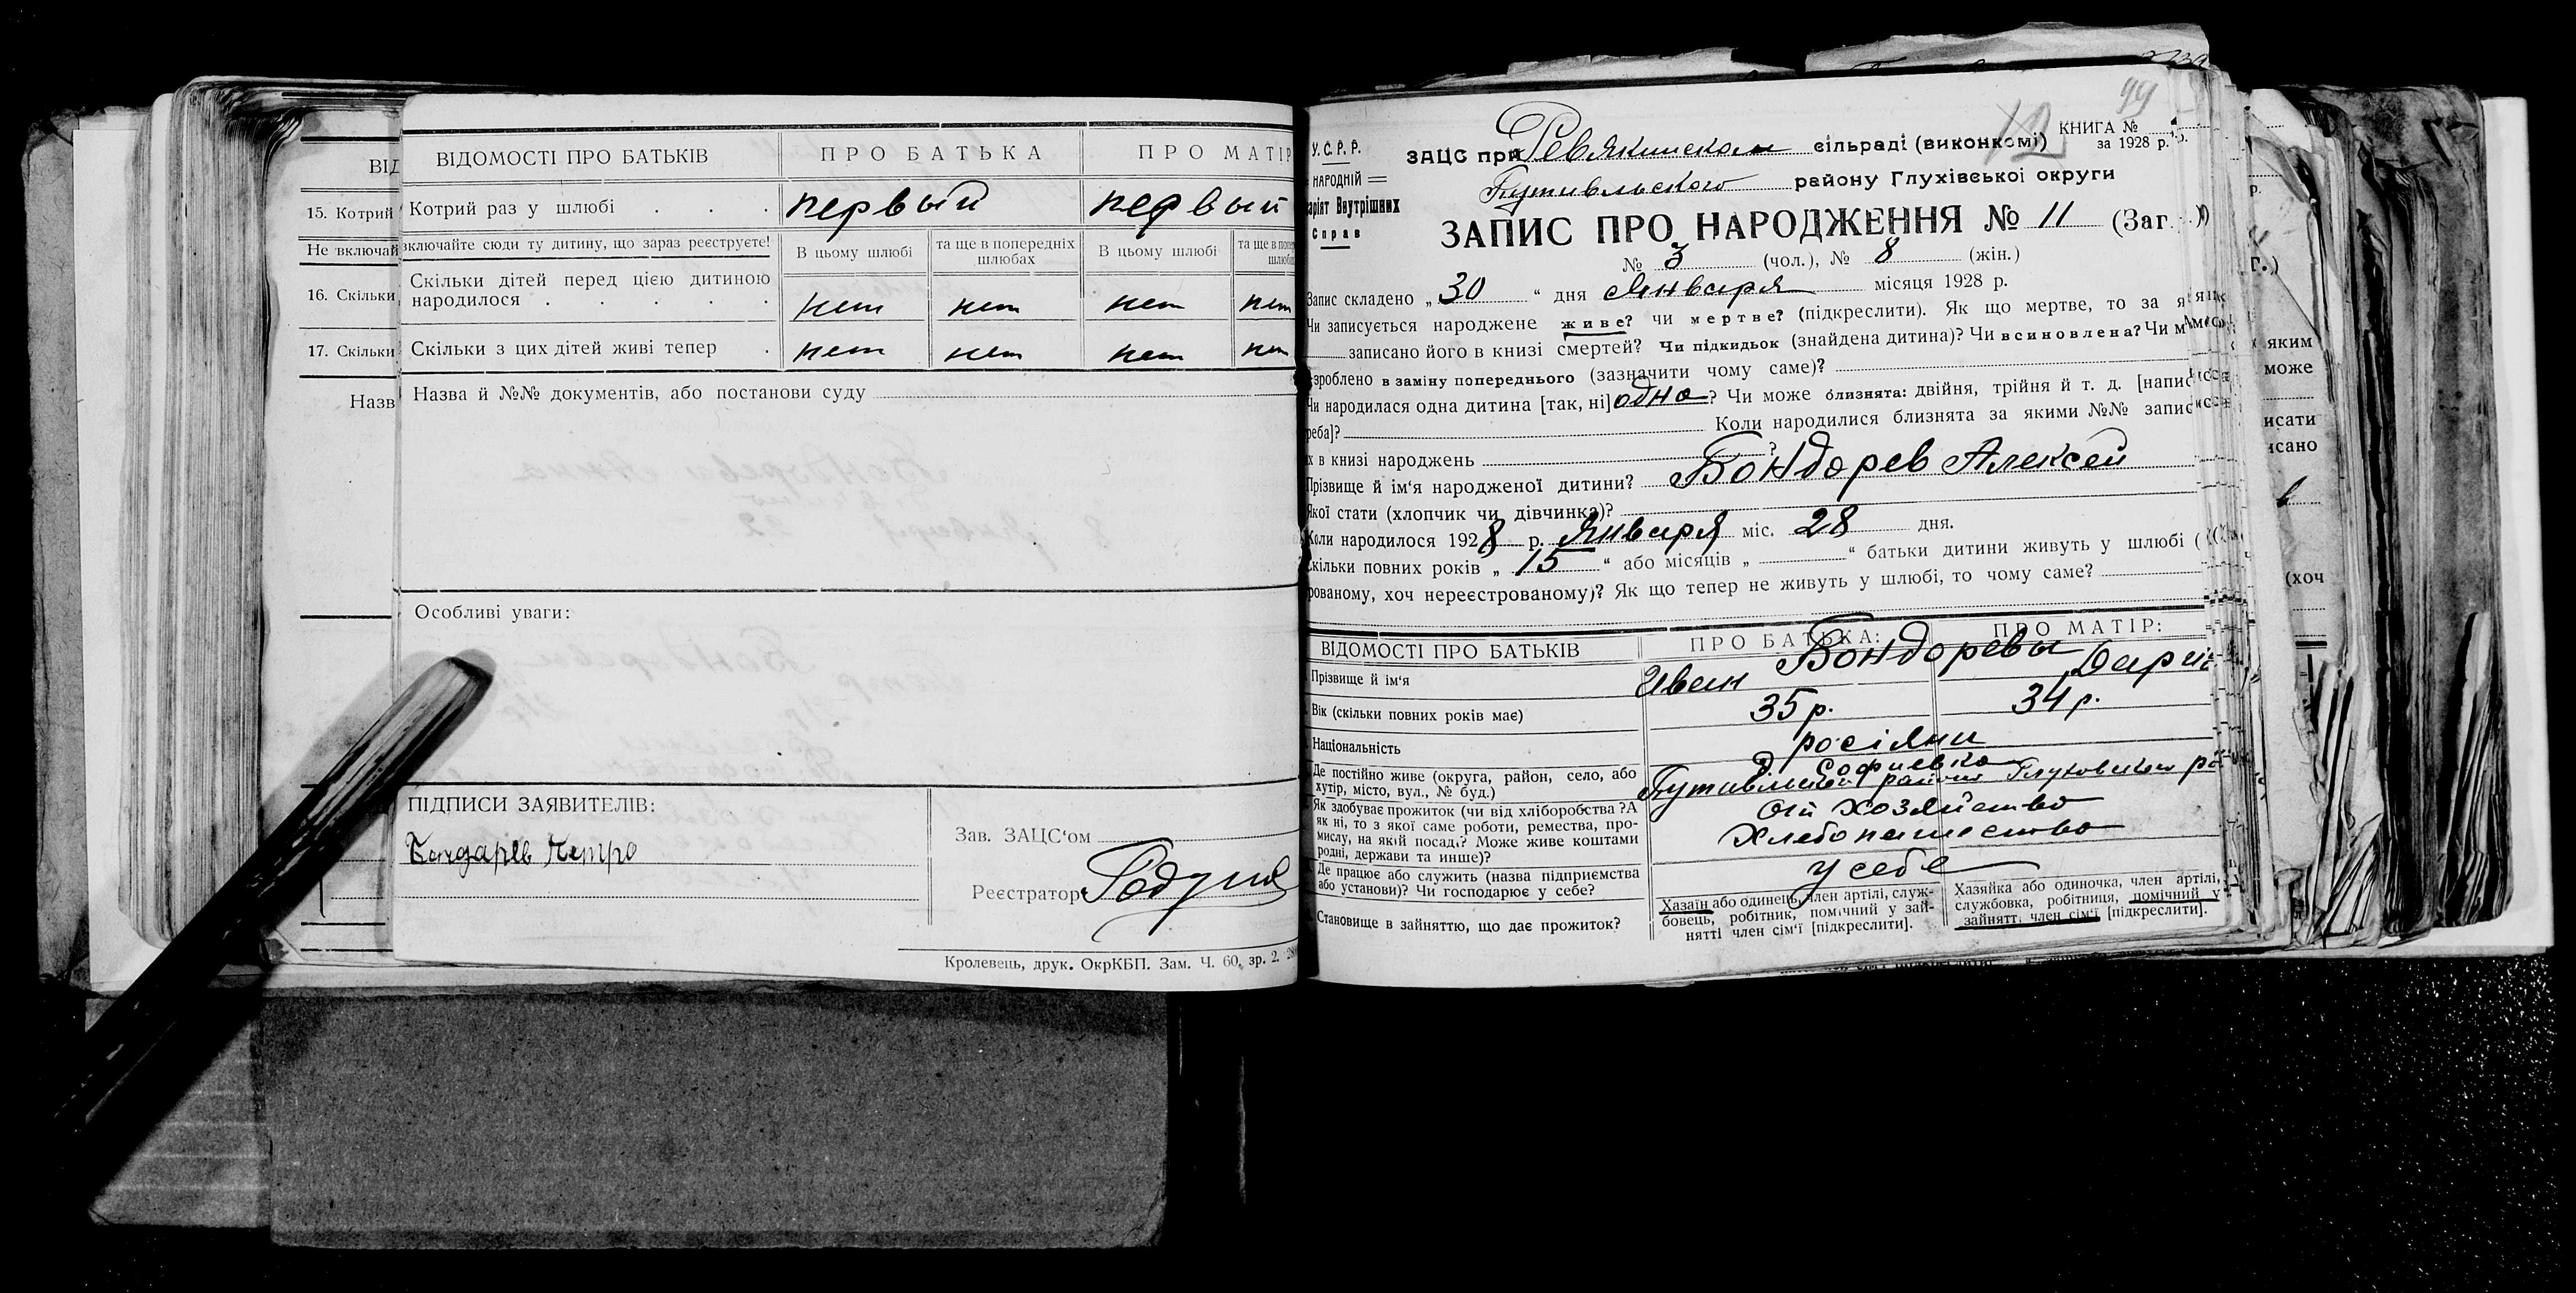 ВІДОМОСТІ ПРО БАТЬКІВ ПРО БАТЬКА ПРО МАТІР
15. Котрий Котрий раз у шлюбі . . . первый первый
Не включай включайте сюди ту дитину, що зараз реєструєте! В цьому шлюбі та ще в попередніх шлюбах В цьому шлюбі та ще в
16. Скільки Скільки дітей перед цією дитиною
народилося . . . . . нет нет нет нет
17. Скільки Скільки з цих дітей живі тепер . нет нет нет нет
Назв Назва й №№ документів, або постанови суду
Особливі уваги:
ПІДПИСИ ЗАЯВИТЕЛІВ:
Бондарев Петро
Зав. ЗАЦС'ом
Реєстратор
Кролевець, друк. ОкрКБП. Зам. Ч. 60, зр. 2.
99
КНИГА №
за 1928 р.
У.С.Р.Р.
НАРОДНІЙ
аріят Внутрішних
Справ
ЗАЦС при Ревякинском сільраді (виконкомі)
Путивльского району Глухівської округи
ЗАПИС ПРО НАРОДЖЕННЯ № 11 (Заг.)
№ 3 (чол.), № 8 (жін.)
Запис складено „30“ дня Января місяця 1928 р.
Чи записується народжене живе? чи мертве? (підкреслити). Як що мертве, то за
записано його в книзі смертей? Чи підкидьок (знайдена дитина)? Чи всиновлена? Чи
зроблено в заміну попереднього (зазначити чому саме)?
Чи народилася одна дитина [так, ні] одна? Чи може близнята: двійня, трійня й т. д. [напис
реба]? Коли народилися близнята за якими №№ запис
х в книзі народжень ?
Прізвище й ім'я народженої дитини? Бондарев Алексей
Якої стати (хлопчик чи дівчинка)?
Коли народилося 1928 р. Января міс. 28 дня.
Скільки повних років „15“ або місяців „ “ батьки дитини живуть у шлюбі (
рованому, хоч нереєстрованому)? Як що тепер не живуть у шлюбі, то чому саме?
ВІДОМОСТІ ПРО БАТЬКІВ ПРО БАТЬКА: ПРО МАТІР:
Прізвище й ім'я Бондаревы Иван Дария
Вік (скільки повних років має) 35 р. 34 р.
Національність росіяни
Де постійно живе (округа, район, село, або
хутір, місто, вул., № буд.)
д. Софиевка
Путивльский района Глуховского
Як здобуває прожиток (чи від хліборобства? А
як ні, то з якої саме роботи, ремества, про-
мислу, на якій посаді? Може живе коштами
родні, держави та инше)?
От хозяйство
Хлебопашество
Де працює або служить (назва підприємства
або установи)? Чи господарює у себе?
у себе
Становище в зайняттю, що дає прожиток?
Хазаїн або одинець, член артілі, служ-
бовець, робітник, помічний у зай-
нятті член сім'ї [підкреслити].
Хазяйка або одиночка, член артілі,
службовка, робітниця, помічний у
зайнятті член сім'ї [підкреслити].